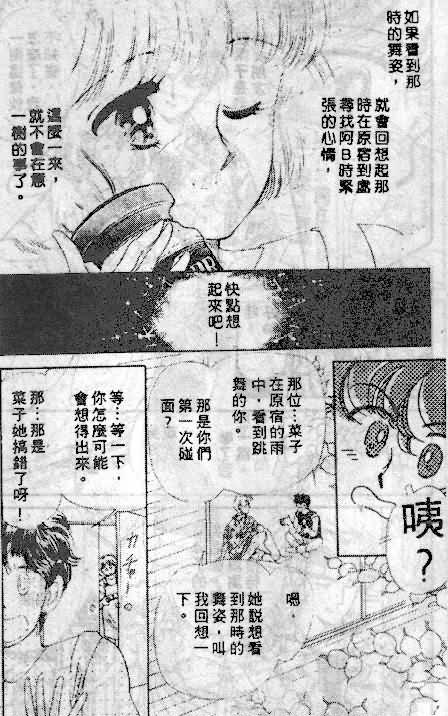 如果看到那
時的舞姿，
就會回想起那
時在原宿到處
尋找阿B時緊
張的心情，
這麼一來，
就不會在意
一樹的事了。
快點想
起來吧！
咦？
那位…菜子
在原宿的雨
中，看到跳
舞的你。
那是你們
第一次碰
面？
嗯
她說想看
到那時的
舞姿，叫
我回想一
下。
等…等一下，
你怎麼可能
會想得出來。
那…那是
菜子她搞錯了呀！
カチャ…